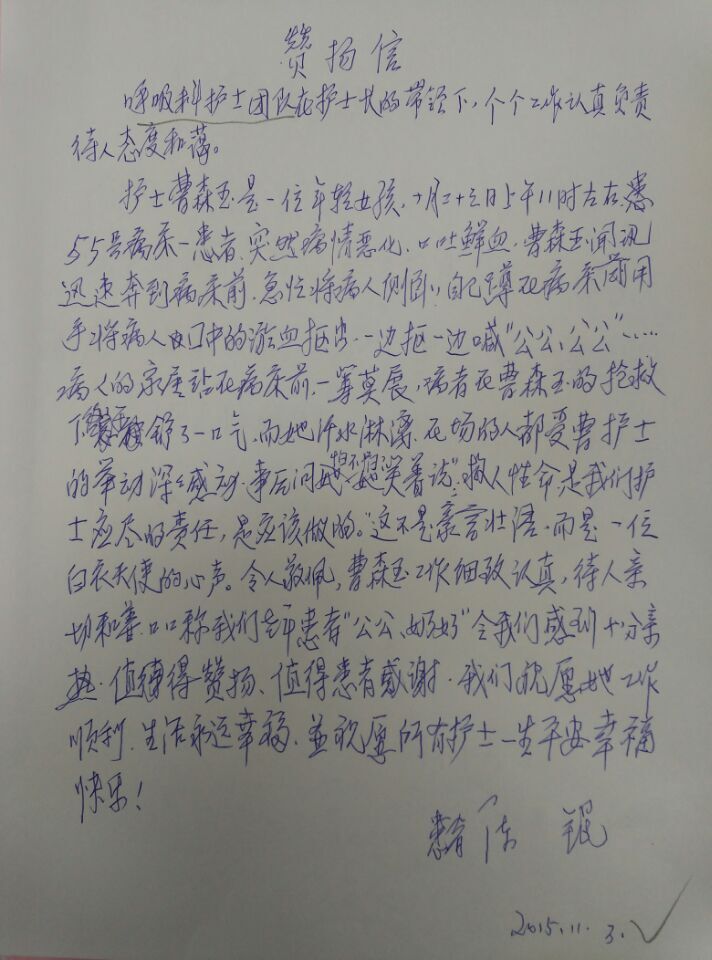 赞扬信
呼吸科护士团队在护士长的带领下，个个工作认真负责
待人态度和蔼。
护士曹森玉是一位年轻女孩，十月二十三日上午11时左右
55号病床一患者，突然病情恶化，口吐鲜血，曹森玉闻讯
迅速奔到病床前，急忙将病人侧卧，自己蹲在病床前用
手将病人口中的淤血抠出，一边抠一边喊“公公，公公”……
病人的家属站在病床前，一筹莫展，病者在曹森玉的抢救
下舒了一口气，而她汗水淋漓，在场的人都受曹护士
的举动深深感动，事后问她怕不怕？她笑着说：“救人性命，是我们护
士应尽的责任，是应该做的。”这不是豪言壮语，而是一位
白衣天使的心声。令人敬佩，曹森玉工作细致认真，待人亲
切和蔼，口口称我们老年患者“公公、奶奶”令我们感到十分亲
热，值得赞扬、值得患者感谢。我们祝愿她工作
顺利，生活永远幸福，並祝愿所有护士一生平安幸福
快乐！
患者 陈 锟
2015.11.3.